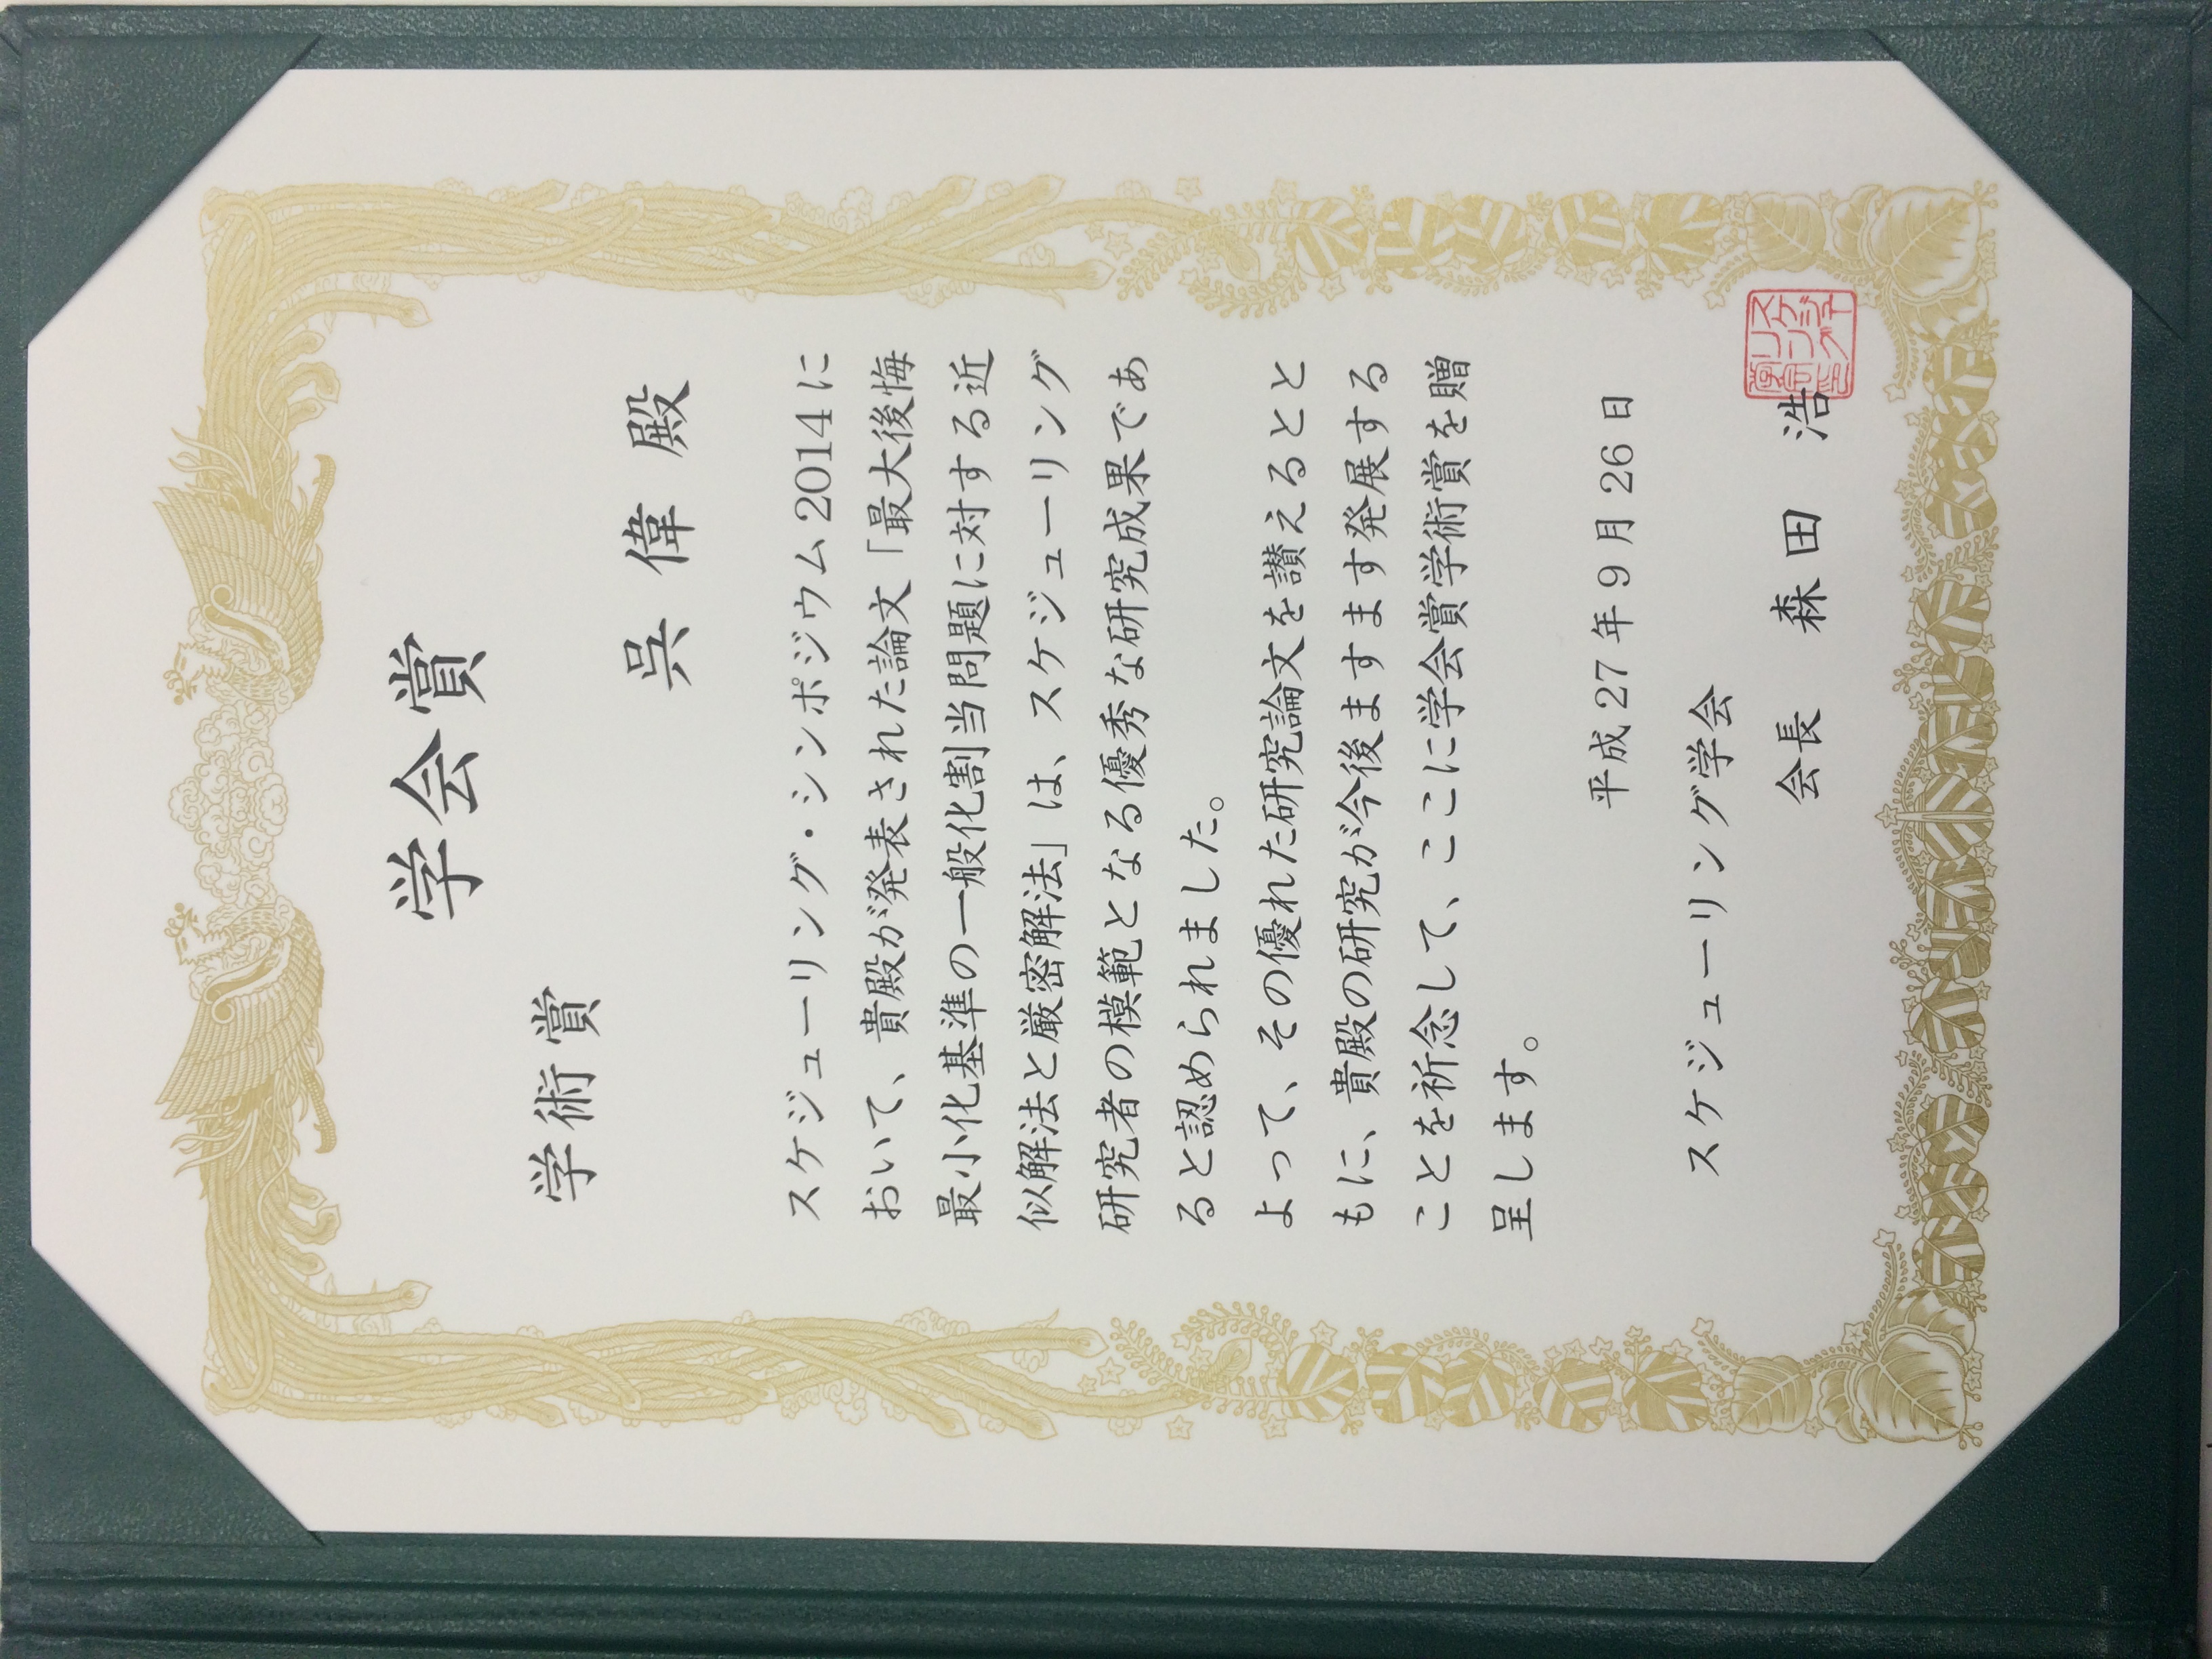 学会賞
学術賞
呉 偉 殿
スケジューリング・シンポジウム2014に
おいて、貴殿が発表された論文「最大後悔
最小化基準の一般化割当問題に対する近
似解法と厳密解法」は、スケジューリング
研究者の模範となる優秀な研究成果であ
ると認められました。
よって、その優れた研究論文を讃えるとと
もに、貴殿の研究が今後ますます発展する
ことを祈念して、ここに学会賞学術賞を贈
呈します。
平成27年9月26日
スケジューリング学会
会長 森田 浩